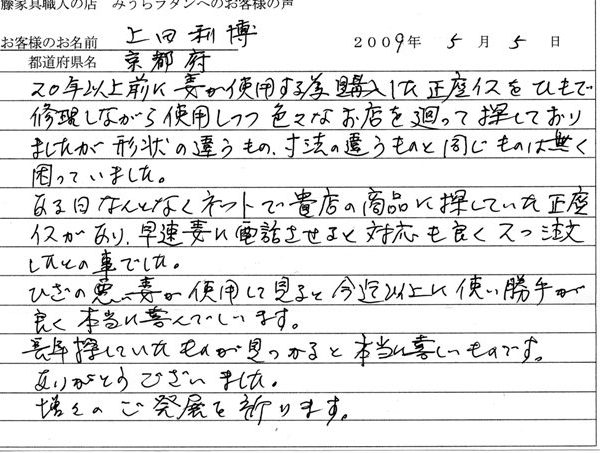 藤家具職人の店 みうらラタンへのお客様の声
お客様のお名前 上田利博 2009年 5月 5日
都道府県名 京都府
20年以上前に妻が使用する為購入した正座イスをひもで
修理しながら使用しつつ色々なお店を廻って探しており
ましたが形状の違うもの、寸法の違うものと同じものは無く
困っていました。
ある日なんとなくネットで貴店の商品に探していた正座
イスがあり、早速妻に電話させると対応も良く2つ注文
したとの事でした。
ひざの悪い妻が使用して見ると今迄以上に使い勝手が
良く本当に喜んでいます。
長年探していたものが見つかると本当に喜しいものです。
ありがとうございました。
増々のご発展を祈ります。